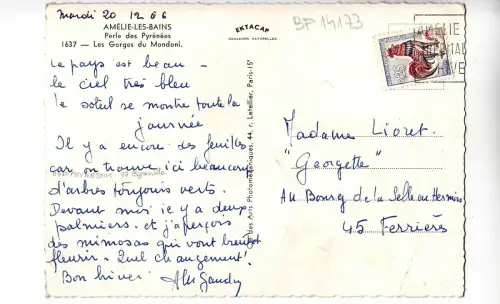 mardi 20 12 66
AMÉLIE-LES-BAINS
Perle des Pyrénées
1637 — Les Gorges du Mondoni.
EKTACAP
COULEURS NATURELLES
BF 14173
AMELIE
HIVE
Le pays est beau -
le ciel très bleu
le soleil se montre toute la
journée
Il y a encore des feuilles
car on trouve, ici beaucoup
d'arbres toujours verts.
Devant moi il y a deux
palmiers et j'aperçois
des mimosas qui vont bientôt
fleurir - Quel changement!
Bon hiver
des Arts Photomécaniques, 44, r. Letellier, Paris-15e
Madame Lioret
"Georgette"
Au Bourg de la Selle en Hermine
45 Ferrières